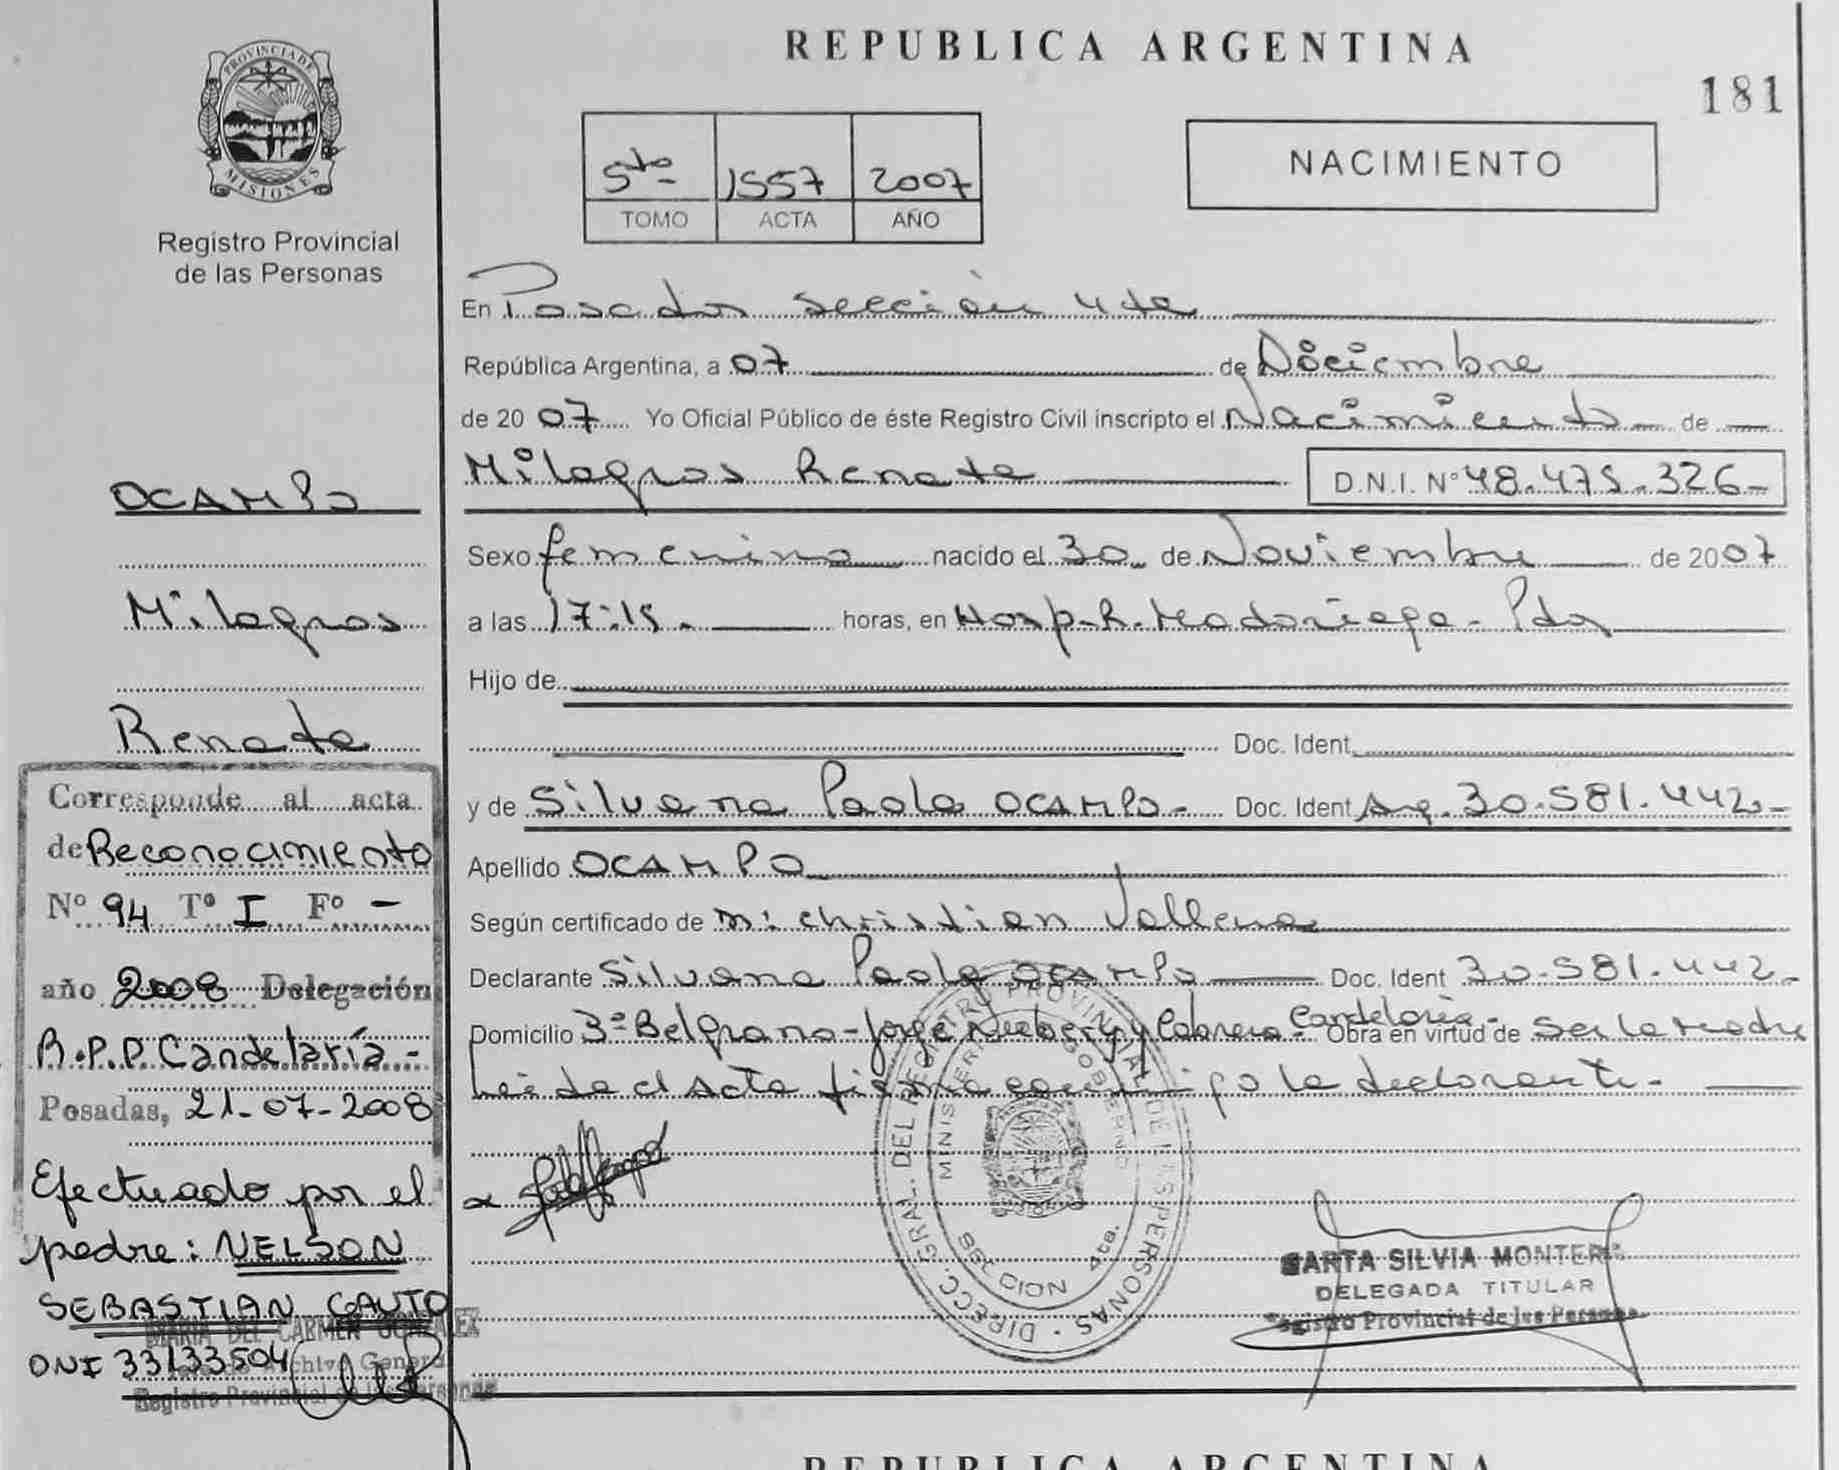 REPUBLICA ARGENTINA
181
PROVINCIA DE
MISIONES
Registro Provincial
de las Personas
5to 1557 2007
TOMO ACTA AÑO
NACIMIENTO
En Posadas sección 4ta
República Argentina, a 07 de Diciembre
de 2007 Yo Oficial Público de éste Registro Civil inscripto el Nacimiento de
Milagros Renata D.N.I. Nº 48.475.326-
Sexo femenino nacido el 30 de Noviembre de 2007
a las 17:15. horas, en Hosp. R. Madariaga - Pdas
Hijo de
Doc. Ident.
y de Silvana Paola OCAMPO - Doc. Ident Arg. 30.581.442-
Apellido OCAMPO
Según certificado de m: christian
Declarante Silvana Paola OCAMPO Doc. Ident 30.581.442-
Domicilio 3º Belgrano - Jorge Newbery y Cabrera - Candelaria - Obra en virtud de ser la madre
Leida el Acta firma conmigo la declarante -
OCAMPO
Milagros
Renata
Corresponde al acta
de Reconocimiento
Nº 94 Tº I Fº -
año 2008 Delegación
R.P.P. Candelaria -
Posadas, 21-07-2008
Efectuado por el
padre: NELSON
SEBASTIAN CAUTO
DNI 33133504
MARIA DEL CARMEN GONZALEZ
Archivo General
Registro Provincial de las Personas
DIRECC. GRAL. DEL REGISTRO PROVINCIAL DE LAS PERSONAS
MINISTERIO GOBIERNO
SECCION 4ta.
MARTA SILVIA MONTERO
DELEGADA TITULAR
Registro Provincial de las Personas
REPUBLICA ARGENTINA